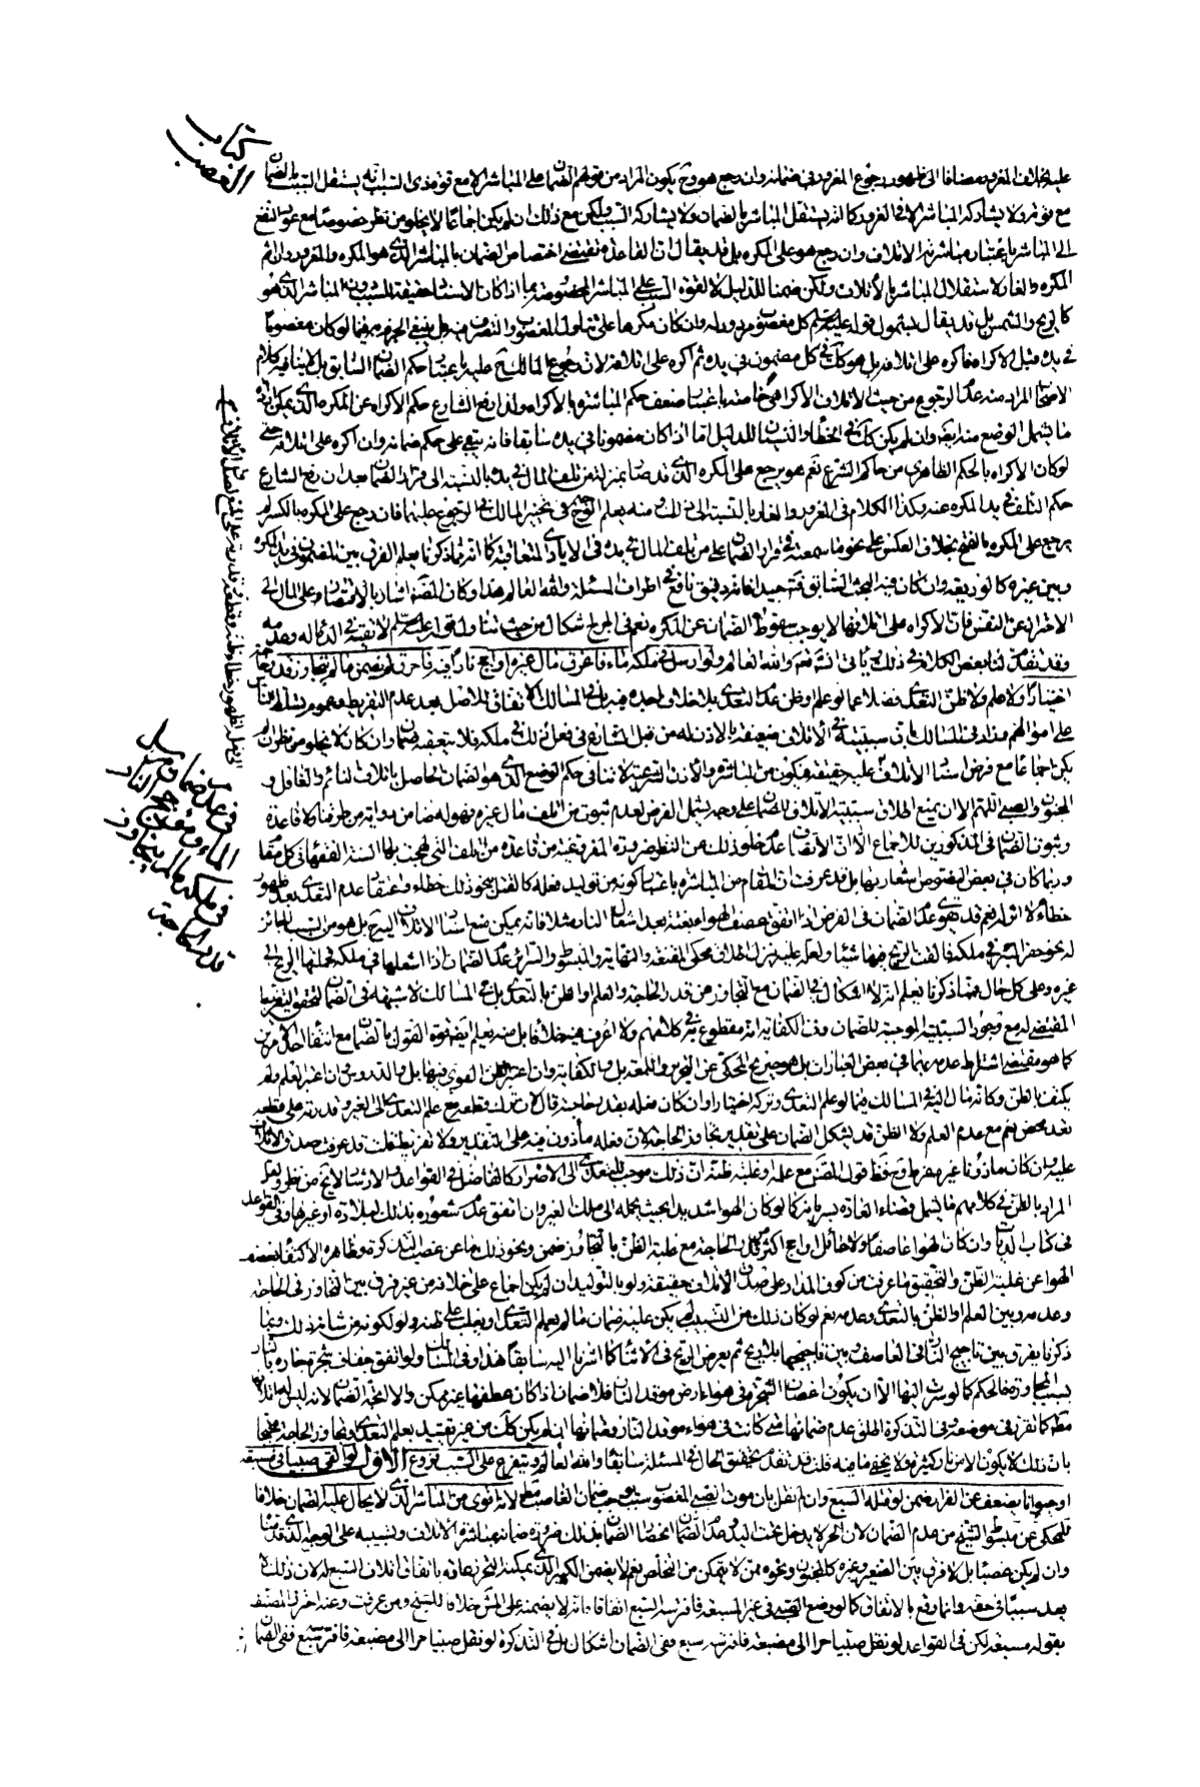 كتاب
الغصب
عليه بخلاف المغرور مضافا الى ظهور رجوع المغرور في ضمانه وان رجع هو وح يكون المراد من قولهم الضمان على المباشر الا مع قوة ذى السبب انه يستقل السبب بالضمان
مع قوته ولا يشاركه المباشر الا في الغرور كما انه يستقل المباشر بالضمان ولا يشاركه السبب ولكن مع ذلك ان لم يكن اجماعا لا يخلو من نظر خصوصا مع عود النفع
الى المباشر باعتبار مباشرته الاتلاف وان رجع هو على المكره بل قد يقال ان القاعدة تقتضى اختصاص الضمان بالمباشر الذى هو المكره والمغرور وان اثم
المكره والغار لاستقلال المباشر بالاتلاف ولكن ضمنا للدليل لا لقوة السبب على المباشر المخصوصة بما اذا كان الاستناد حقيقة للسبب دون المباشر الذى هو
كالريح والشمس بل قد يقال بشمول قوله عليه السلم كل مغصوب مردود له وان كان مكرها على تناول المغصوب والتصرف فيه بل ينبغى الجزم به فيما لو كان مغصوبا
في يده قبل الاكراه فاكره على اتلافه بل هو كك في كل مضمون في يده ثم اكره على اتلافه لان رجوع المالك ح عليه باعتبار حكم الضمان السابق بل لا ينافيه كلام
الاصحاب المراد منه عدم الرجوع من حيث الاتلاف الاكراهى خاصة باعتبار ضعف حكم المباشرة بالاكراه ولذا رفع الشارع حكم الاكراه عن المكره الذى يمكن ارادة
ما يشمل الوضع منه ايضا وان لم يكن كك في الخطاء والنسيان للدليل اما اذا كان مضمونا في يده سابقا فانه يبقى على حكم ضمانه وان اكره على اتلافه حتى
لو كان الاكراه بالحكم الظاهرى من حاكم الشرع نعم هو يرجع على المكره الذى قد صار بمنزلة من تلف المال في يده بالنسبة الى قرار الضمان بعد ان رفع الشارع
حكم التلف في يد المكره عنه وكذا الكلام في المغرور والغار بالنسبة الى ذلك ومنه يعلم الوجه في تخيير المالك في الرجوع عليهما فان رجع على المكره بالكسر لم
يرجع على المكره بالفتح بخلاف العكس على نحو ما سمعته في قرار الضمان على من تلف المال في يده في الايادى المتعاقبة كما انه مما ذكرنا يعلم الفرق بين المضمون في يد المكره
وبين غيره كالوديعة وان كان فيه البحث السابق فتامل جيدا فانه دقيق نافع في اطراف المسئلة والله العالم هذا وكان المصنف اشار بالاقتصار على المال الى
الاحتراز عن النفس فان الاكراه على اتلافها لا يوجب سقوط الضمان عن المكره نعم في الجرح اشكال من حيث تناول قوله عليه السلم لا تقية في الدماء له وعدمه
وقد تقدم لنا بعض الكلام في ذلك ياتى انشاء الله والله العالم ولو ارسل في ملكه ماء فاغرق مال غيره او اجج نارا فيه فاحرق لم يضمن ما لم يتجاوز قدر حاجته
اختيارا ولا علم ولا ظن التعدى فضلا عما لو علم او ظن عدم التعدى بلا خلاف اجده فيه بل في المسالك الاتفاق للاصل بعد عدم التفريط وعموم تسلط الناس
على اموالهم وزاد في المسالك بان سببيته في الاتلاف ضعيفة بالاذن له من قبل الشارع في فعل ذلك في ملكه فلا يتعقبه ضمان وان كان لا يخلو من نظر ان لم
يكن اجماعا مع فرض استناد الاتلاف عليه حقيقة فيكون من المباشرة والاذن الشرعية لا تنافى حكم الوضع الذى هو الضمان الحاصل باتلاف النائم والغافل و
المجنون والصبى اللهم الا ان يمنع اطلاق سببية الاتلاف للضمان على وجه يشمل الفرض لعدم ثبوت من اتلف مال غيره فهو له ضامن رواية من طرقنا كالقاعدة
وثبوت الضمان في المذكورين للاجماع الا ان الانصاف عدم خلو ذلك من النظر ضرورة المفروغية من قاعدة من اتلف التى لهجت بها السنة الفقهاء في كل مقام
وربما كان في بعض النصوص اشعار بها بل قد عرفت ان المقام من المباشرة باعتبار كونه من توليد فعله كالقتل بنحو ذلك خطاء واعتقاد عدم التعدى بعد ظهور
خطاءه لا اثر له نعم قد يقوى عدم الضمان في الفرض اذا اتفق عصف الهواء بغتة بعد اشعال النار مثلا فانه يمكن منع استناد الاتلاف اليه ح بل هو من التسبيب الجائز
له نحو حفر البئر في ملكه فالقت الريح فيها شيئا ولعله عليه ينزل اطلاق محكى المقنعة والنهاية والمبسوط والسرائر عدم الضمان اذا اشعلها في ملكه فحملتها الريح الى
غيره وعلى كل حال فمما ذكرنا يعلم انه لا اشكال في الضمان مع التجاوز من قدر الحاجة والعلم او الظن بالتعدى بل في المسالك لا شبهة في الضمان لتحقق التفريط
المقتضى له مع وجود السببية الموجبة للضمان وفى الكفاية انه مقطوع به في كلامهم ولا اعرف فيه خلافا بل منه يعلم ايضا قوة القول بالضمان مع انتفاء احد الامرين
كما هو مقتضى اشتراط عدمهما في بعض العبارات بل هو صريح المحكى عن التحرير واللمعة بل والكفاية وان اعتبر الظن القوى فيها بل والدروس وان اعتبر العلم ولم
يكتف بالظن وكانه مال اليه في المسالك فيما لو علم التعدى وتركه اختيارا وان كان فعله بقدر حاجته قال لان ترك قطعه مع علم التعدى الى الغير وقدرته على قطعه
تعد محض نعم مع عدم العلم ولا الظن قد يشكل الضمان على تقدير تجاوز الحاجة لان فعله مأذون فيه على التقدير ولا تفريط قلت قد عرفت صدق الاتلاف
عليه وان كان ماذونا غير مفرط وح فقول المصنف مع علمه او غلبة ظنه ان ذلك موجب للتعدى الى الاضرار كالفاضل في القواعد والارشاد لا يخ من نظر ولعل
المراد بالظن في كلامهم ما يشمل قضاء العادة بسرايته كما لو كان الهواء شديدا بحيث يحمله الى ملك الغير وان اتفق عدم شعوره بذلك لبلادة او غيرها وفى القواعد
في كتاب الديات وان كان الهواء عاصفا ولا حائل او اجج اكثر من قدر الحاجة مع غلبة الظن بالتجاوز ضمن ونحو ذلك ما عن غصب التذكرة وظاهره الاكتفاء بعصف
الهواء عن غلبة الظن والتحقيق ما عرفت من كون المدار على صدق الاتلاف حقيقة ولو بالتوليد ان لم يكن اجماع على خلافه من غير فرق بين التجاوز في الحاجة
وعدمه وبين العلم والظن بالتعدى وعدمه نعم لو كان ذلك من التسبيب لم يكن عليه ضمان ما لم يعلم التعدى او يغلب على ظنه ولو لكونه من شانه ذلك وعما
ذكرنا يفرق بين تاجيج النار في العاصف وبين تاجيجها بلا ريح ثم يعرض الريح في الاثناء كما اشرنا اليه سابقا هذا وفى المسالك ولو اتفق جفاف شجرة جاره بالنار
بسبب المجاورة فالحكم كما لو سرت اليها الا ان يكون اغصان الشجرة في هواء ارض موقد النار فلا ضمان اذا كان عطفها غير ممكن والا اتجه الضمان لانه ليس له اتلافها
مطلقا كما تقرر في موضعه وفى التذكرة اطلق عدم ضمانها متى كانت في هواء موقد النار وضمانها ان لم يكن كك من غير تقييد بعلم التعدى وتجاوز الحاجة محتجا
بان ذلك لا يكون الا من نار كثيرة ولا يخفى ما فيه قلت قد تقدم تحقيق الحال في المسئلة سابقا والله العالم ويتفرع على السبب فروع الاول لو القى صبيا في مسبعة
او حيوانا يضعف عن الفرار ضمن لو قتله السبع وان لم نقل بان موت الصبى المغصوب بسبب يوجب ضمان الغاصب مط لانه اقوى من المباشر الذى لا يحال عليه الضمان خلافا
للمحكى عن مبسوط الشيخ من عدم الضمان لان الحر لا يدخل تحت اليد وعدم الضمان انحصار الضمان بذلك ضرورة ضمانه بمباشرة الاتلاف وتسبيبه على الوجه الذى قدمنا
وان لم يكن غصبا بل لا فرق بين الصغير وغيره كالمجنون ونحوه ممن لا يتمكن من التخلص نعم لا يضمن الكبير الذى يمكنه التحرز عادة باتفاق اتلاف السبع له لان ذلك لا
يعد سببا في حقه وانما وقع بالاتفاق كما لو وضع الصبى في غير المسبعة فافترسه السبع اتفاقا فانه لا يضمنه على المش خلافا للشيخ ومن عرفت وعنه احترز المصنف
بقوله مسبعة لكن في القواعد لو نقل صبيا حرا الى مضيعة فافترسه سبع ففى الضمان اشكال بل في التذكرة لو نقل صبيا حرا الى مضيعة فافترسه سبع ففى الضمان
في عدم ضمان مرسل
الماء ومؤجج النار
في ملكه ما لم يتجاوز
قدر الحاجة